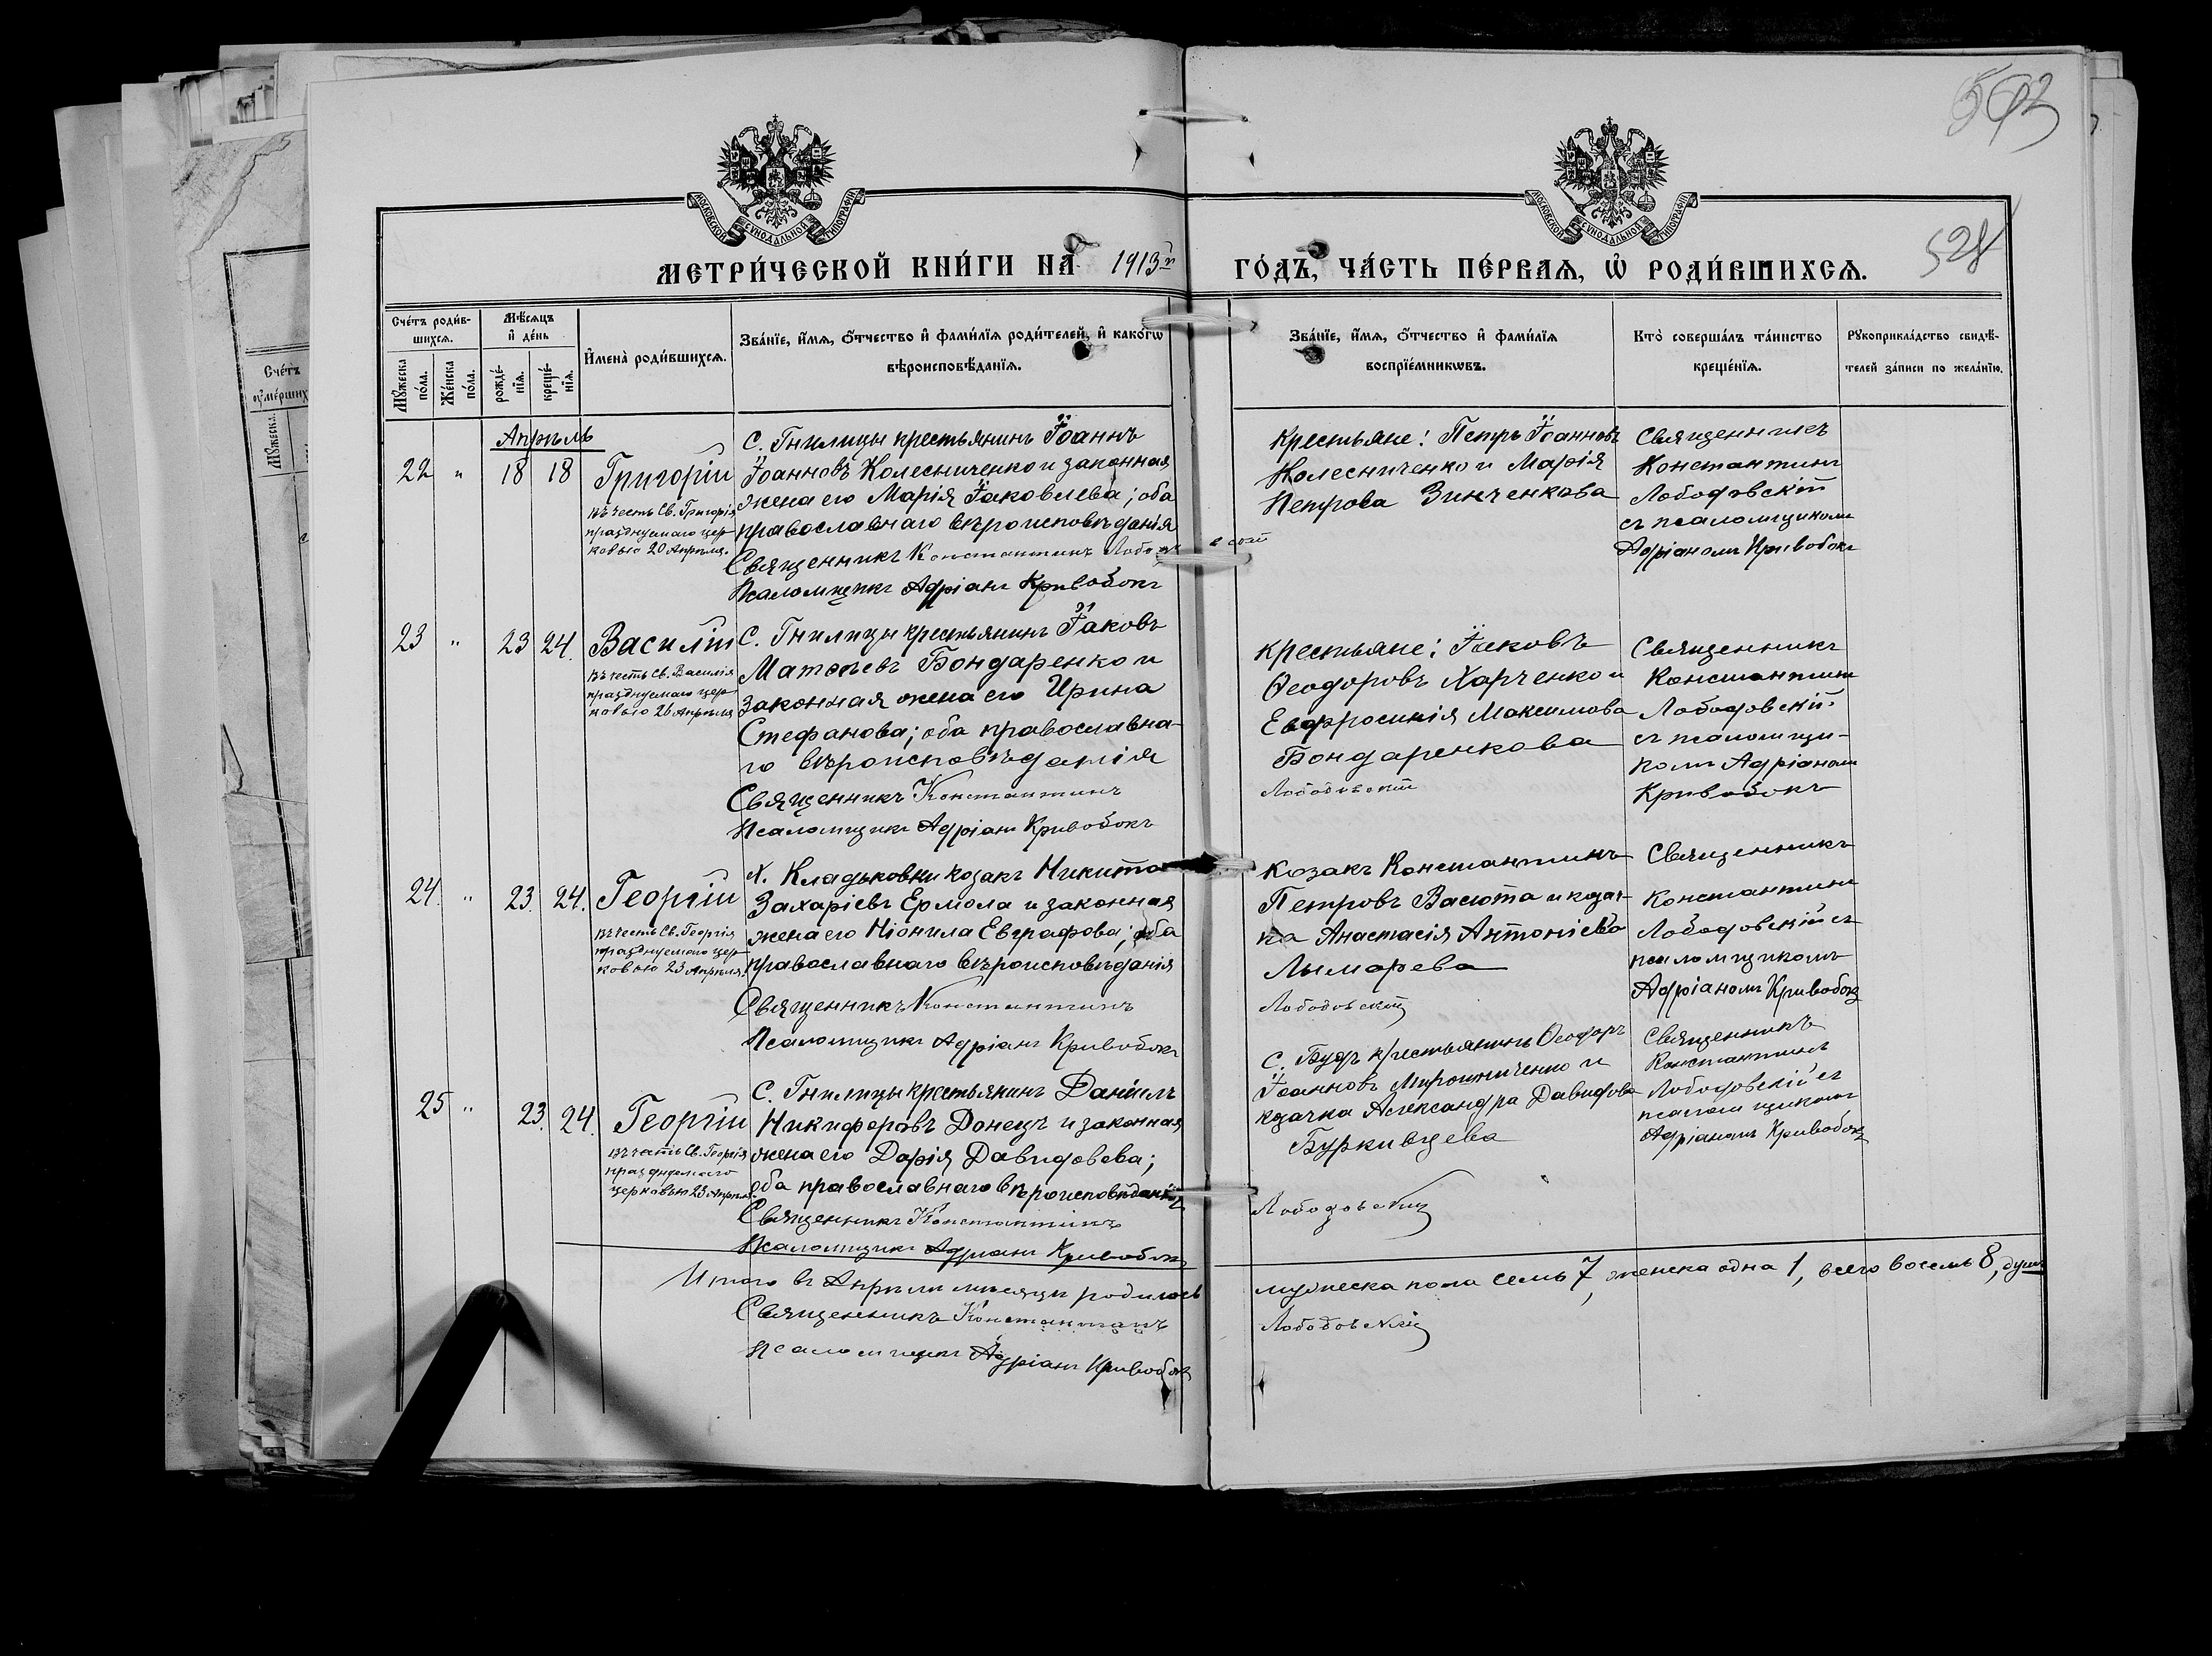 592
528
МОСКОВСКОЙ СѴНОДАЛЬНОЙ ТИПОГРАФІИ
МОСКОВСКОЙ СѴНОДАЛЬНОЙ ТИПОГРАФІИ
МЕТРИ́ЧЕСКОЙ КНИ́ГИ НА 1913й ГО́ДЪ, ЧА́СТЬ ПЕ́РВАѦ, Ѽ РОДИ́ВШИХСѦ.
Сче́тъ роди́в-
шихсѧ.
Мꙋ́жеска по́ла.
Же́нска по́ла.
Мѣ́сѧцъ
и҆ де́нь
рожде́-
нїѧ.
креще́-
нїѧ.
И҆мена̀ роди́вшихсѧ.
Зва́нїе, и҆́мѧ, ѻ҆́тчество и҆ фами́лїѧ роди́телей, и҆ како́гѡ
вѣроисповѣ́данїѧ.
Зва́нїе, и҆́мѧ, ѻ҆́тчество и҆ фами́лїѧ
воспрїе́мникѡвъ.
Кто̀ соверша́лъ та́инство
креще́нїѧ.
Рꙋкоприкла́дство свидѣ́-
телей за́писи по жела́нїю.
Счетъ
ᲂумершихъ
Мꙋжеска
Апрѣль
22 " 18 18 Григорій
въ честь Св. Григорія
празднуемаго цер-
ковью 20 Апрѣля.
С. Гнилицы крестьянинъ Іоаннъ
Іоанновъ Колесниченко и законная
жена его Марія Іаковлева; оба
православнаго вѣроисповѣданія
Священникъ Константинъ Лободовскій
Псаломщикъ Адріанъ Кривобокъ
Крестьяне: Петръ Іоанновъ
Колесниченко и Марія
Петрова Зинченкова
Священникъ
Константинъ
Лободовскій
съ псаломщикомъ
Адріаномъ Кривобокъ
23 " 23 24. Василій
въ честь Св. Василія
празднуемаго цер-
ковью 26 Апрѣля
С. Гнилицы крестьянинъ Іаковъ
Матѳѣевъ Бондаренко и
законная жена его Ирина
Стефанова; оба православна-
го вѣроисповѣданія
Священникъ Константинъ
Псаломщикъ Адріанъ Кривобокъ
крестьяне: Іаковъ
Ѳеодоровъ Харченко и
Евфросинія Максимова
Бондаренкова
Лободовскій
Священникъ
Константинъ
Лободовскій
съ псаломщи-
комъ Адріаномъ
Кривобокъ
24. " 23. 24. Георгій
въ честь Св. Георгія
празднуемаго цер-
ковью 23 Апрѣля.
Х. Кладьковки козакъ Никита
Захаріевъ Ермола и законная
жена его Ніонила Евграфова; оба
православнаго вѣроисповѣданія
Священникъ Константинъ
Псаломщикъ Адріанъ Кривобокъ
козакъ Константинъ
Петровъ Васюта и козач-
ка Анастасія Антоніева
Лымарева
Лободовскій
Священникъ
Константинъ
Лободовскій съ
псаломщикомъ
Адріаномъ Кривобокъ
25 " 23. 24. Георгій
въ честь Св. Георгія
празднуемаго
церковью 23 Апрѣля.
С. Гнилицы крестьянинъ Даніилъ
Никифоровъ Донецъ и законная
жена его Дарія Давидовева;
оба православнаго вѣроисповѣданія
Священникъ Константинъ
Псаломщикъ Адріанъ Кривобокъ
С. Будъ крестьянинъ Ѳеодоръ
Іоанновъ Мирошниченко и
козачка Александра Давидова
Буркивцева
Лободовскій
Священникъ
Константинъ
Лободовскій съ
псаломщикомъ
Адріаномъ Кривобокъ
Итого въ Апрѣлѣ мѣсяцѣ родилось мужеска пола семь 7, женска одна 1, всего восемь 8, душъ
Священникъ Константинъ Лободовскій
Псаломщикъ Адріанъ Кривобокъ